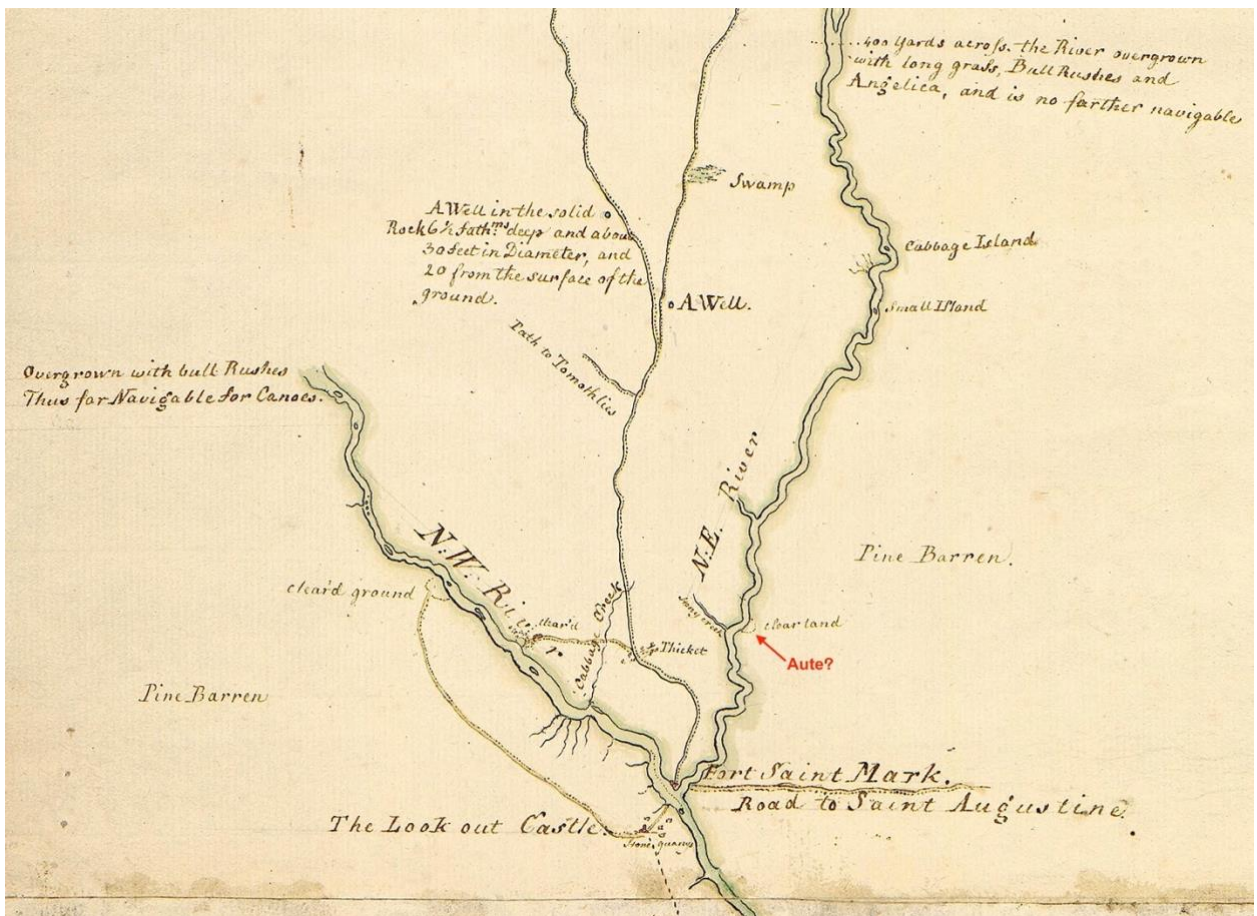 400 Yards across. the River overgrown
with long grass, Bull Rushes and
Angelica, and is no farther navigable
Swamp
A Well in the solid
Rock 6½ fath.ms deep and about
30 feet in Diameter, and
20 from the surface of the
ground.
Cabbage Island
A Well.
Small Island
Path to Tomothlies
Overgrown with bull Rushes
Thus far Navigable for Canoes.
N.E. River
N.W. River
Pine Barren.
Clear'd ground
Clear'd
Cabbage Creek
Clear land
Thicket
Aute?
Pine Barren
Fort Saint Mark.
Road to Saint Augustine.
The Look out Castle.
Stone quarry